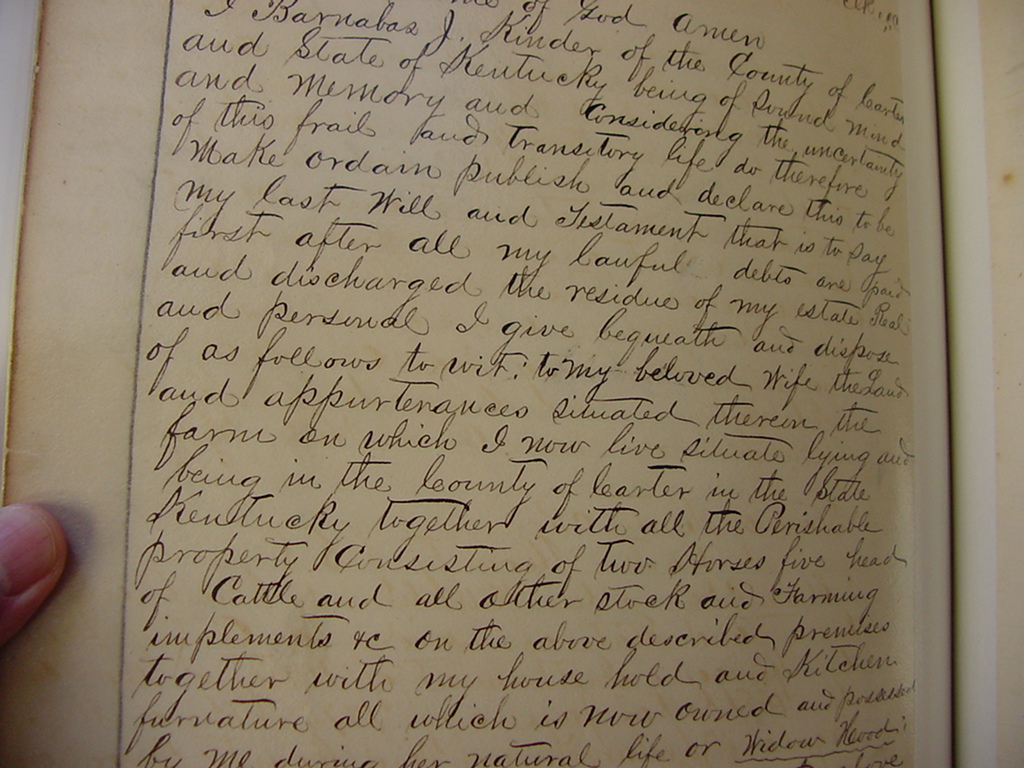 me of God amen
I Barnabas J. Kinder of the County of Carter
and State of Kentucky being of Sound mind
and Memory and Considering the uncertainty
of this frail and transitory life do therefore
Make ordain publish and declare this to be
My last Will and Testament that is to say
first after all my lawful debts are paid
and discharged the residue of my estate Real
and personal I give bequeath and dispose
of as follows to wit: to my beloved wife the
and appurtenances situated therein the
farm on which I now live situate lying and
being in the County of Carter in the State
Kentucky together with all the Perishable
property Consisting of two Horses five head
of Cattle and all other stock and Farming
implements &c on the above described premises
together with my house hold and Kitchen
furnature all which is now owned and possessed
by Me during her natural life or Widow Hood